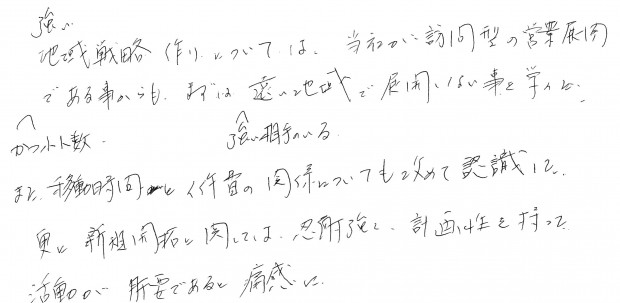 強い
地域戦略作りについては、当初から訪問型の営業展開
である事からも、まずは遠い地域で展開しない事を学んだ。
カウント数. 強い相手がいる.
また、移動時間と人件費の関係についても改めて認識した。
更に新規開拓に関しては、忍耐強く、計画性を持った
活動が肝要であると痛感した.